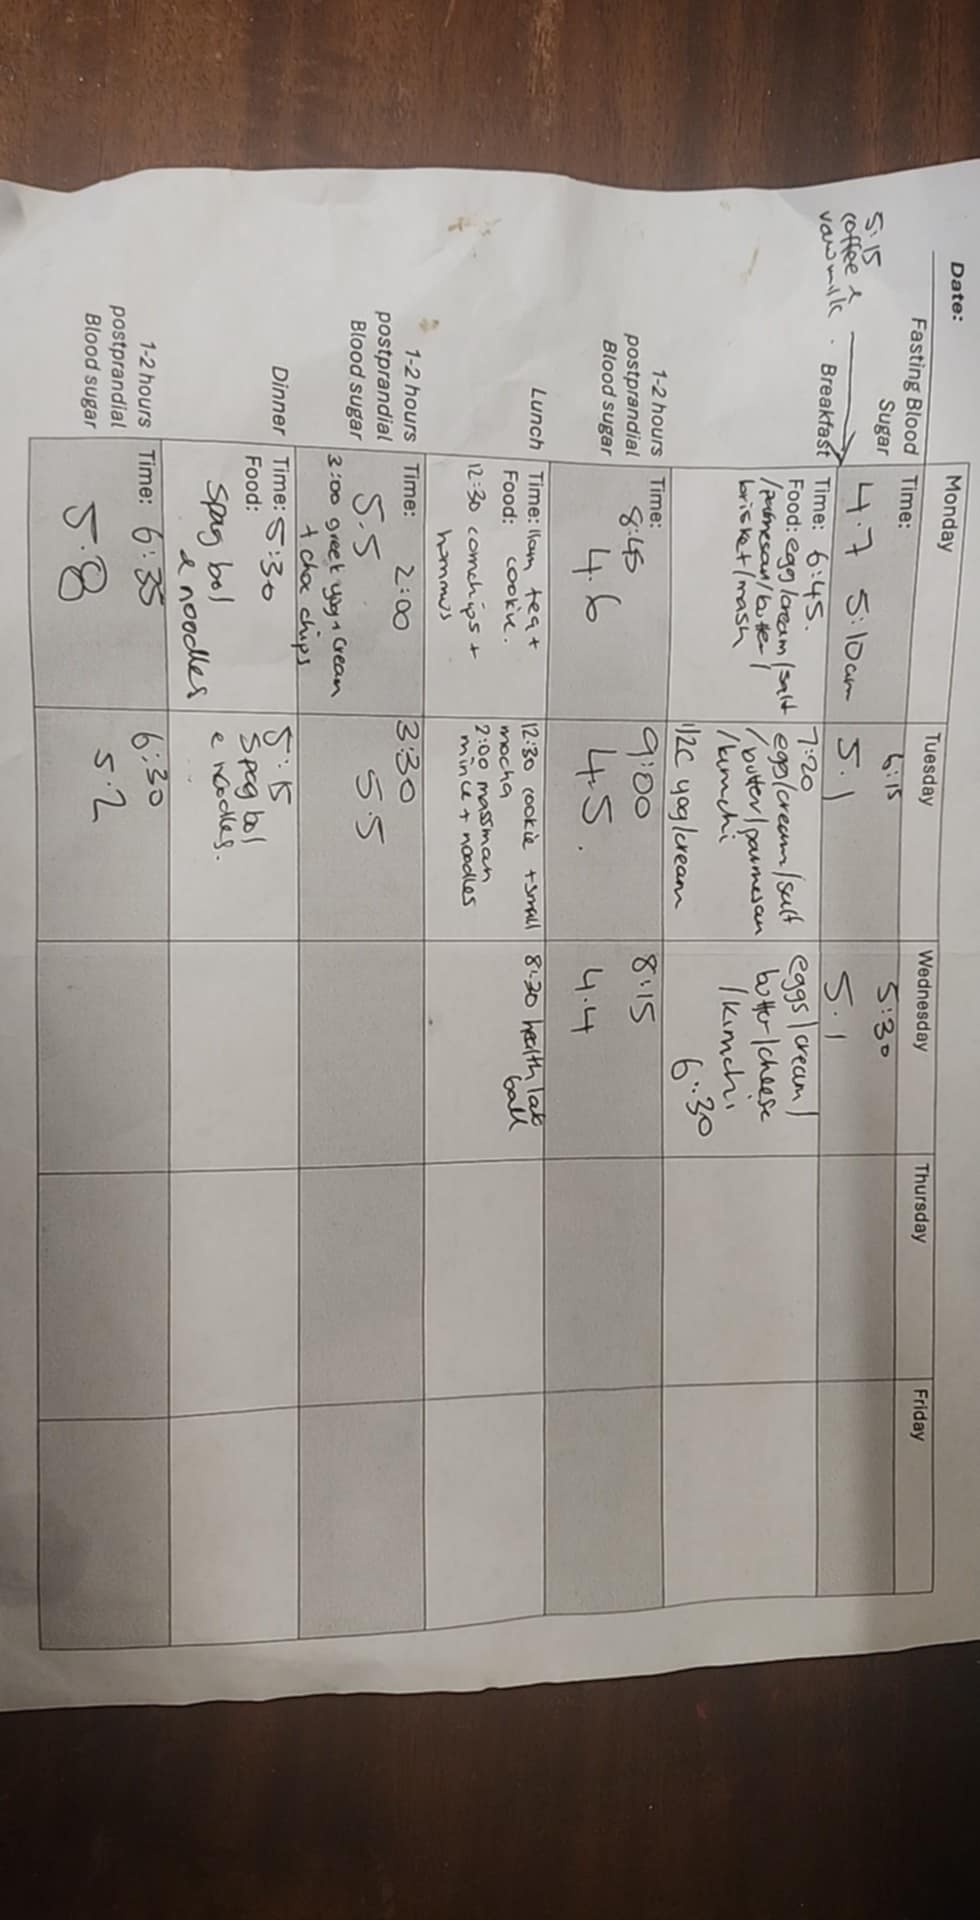 Date:
Monday
Tuesday
Wednesday
Thursday
Friday
Fasting Blood
Sugar
Time:
4.7 5:10am
6:15
5.1
5:30
5.1
5:15
coffee &
raw milk
Breakfast
Time: 6:45.
Food: egg/cream/salt
/parmesan/butter/
brisket/mash
7:20
egg/cream/salt
/butter/parmesan
/kimchi
1/2c yog/cream
eggs/cream/
butter/cheese
/kimchi
6:30
1-2 hours
postprandial
Blood sugar
Time:
8:45
4.6
9:00
4.5.
8:15
4.4
Lunch
Time: 11am tea +
Food: cookie.
12:30 cornchips +
hommus
12:30 cookie + small
mocha
2:00 massman
mince + noodles
8:30 health lab
ball
1-2 hours
postprandial
Blood sugar
Time: 2:00
5.5
3:00 greek yog + cream
+ choc chips
3:30
5.5
Dinner
Time: 5:30
Food:
Spag bol
& noodles
5:15
Spag bol
e noodles.
1-2 hours
postprandial
Blood sugar
Time: 6:35
5.8
6:30
5.2